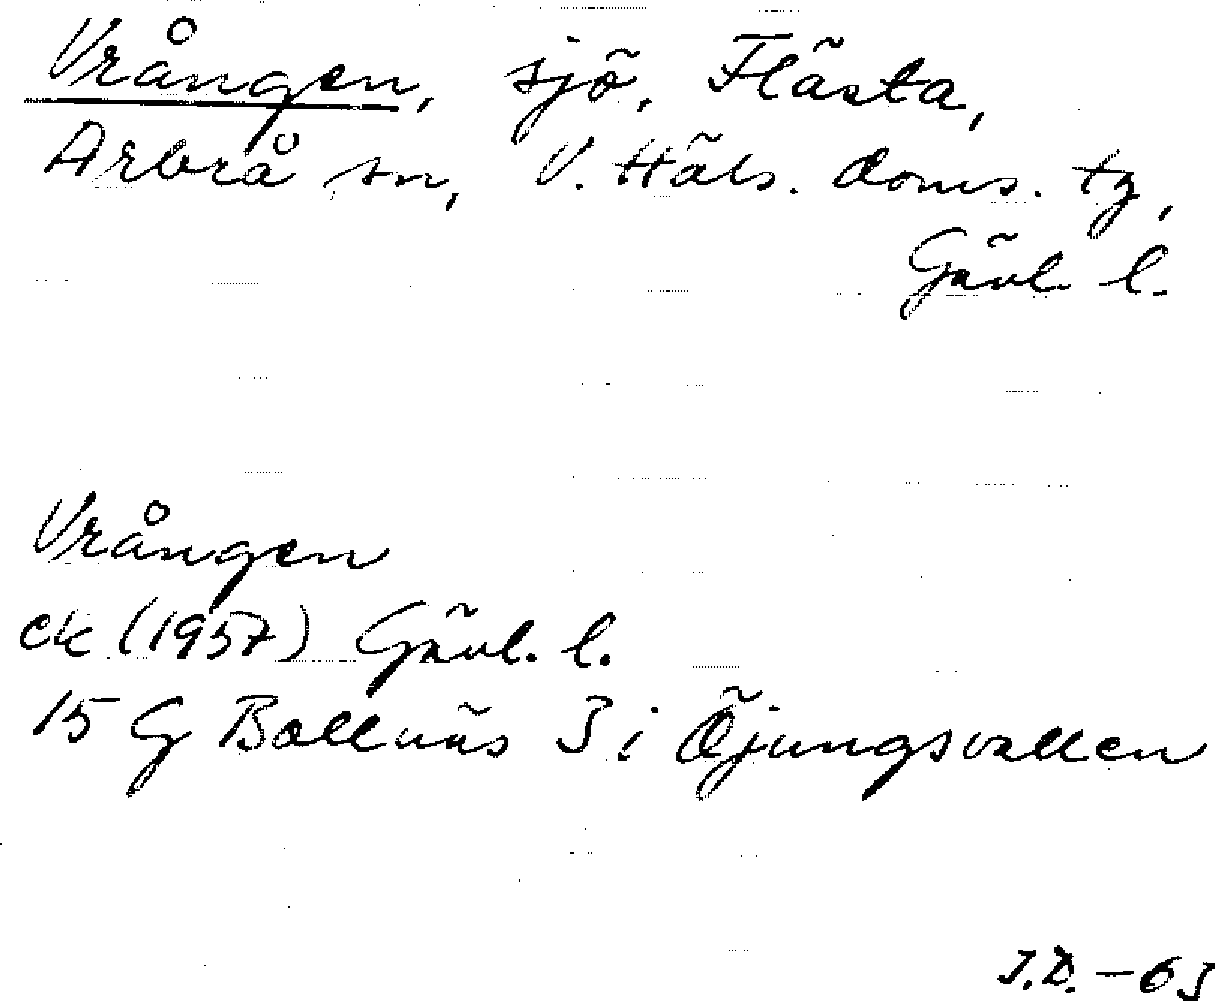 Vrången, sjö, Flästa,
Arbrå sn, V. Häls. doms. tg,
Gävl. l.
Vrången
ek (1957) Gävl. l.
15 G Bollnäs 3 i Öjungsvallen
J.D. - 63